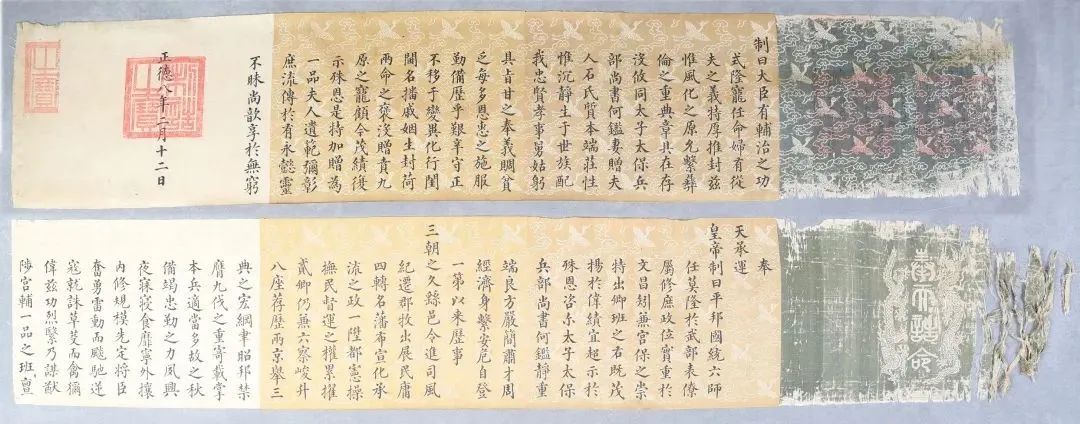 制曰大臣有輔治之功
式隆寵任命婦有從
夫之義特厚推封兹
惟風化之原允繫彝
倫之重典章具在存
沒攸同太子太保兵
部尚書何鑑妻贈夫
人石氏質本端莊性
惟沉靜生于世族配
我忠賢孝事舅姑躬
具旨甘之奉義賙貧
乏每多恩忠之施服
勤備歷乎艱辛守正
不移于變異化行閨
闥名擋戚姻生封荷
兩命之褒沒贈賁九
原之寵顧今茂績復
示殊恩是特加贈為
一品夫人遺範彌彰
庶流傳於有永懿靈
不昧尚歆享於無窮
正德八年二月十二日
制誥之寶
之寶
奉天誥命
奉
天承運
皇帝制曰平邦國統六師
任莫隆於武部表僚
屬修庶政位實重於
文昌矧兼宮保之崇
特出卿班之右既茂
揚於偉績宜超示於
殊恩咨尓太子太保
兵部尚書何鑑靜重
端良方嚴簡肅才周
經濟身繫安危自登
一第以來歷事
三朝之久縣邑令進司風
紀遷郡牧出展民庸
四轉名藩布宣化承
流之政一陞都憲操
撫民督運之權累擢
貳卿仍兼六察峻升
八座荐歷兩京舉三
典之宏綱聿昭邦禁
膺九伐之重寄載掌
本兵適當多故之秋
備竭忠勤之力夙興
夜寐寢食靡寧外攘
內修規模先定將臣
奮勇雷動而飈馳逆
寇就誅草芟而禽獮
偉茲功烈繄乃謀猷
陟宮輔一品之班亶